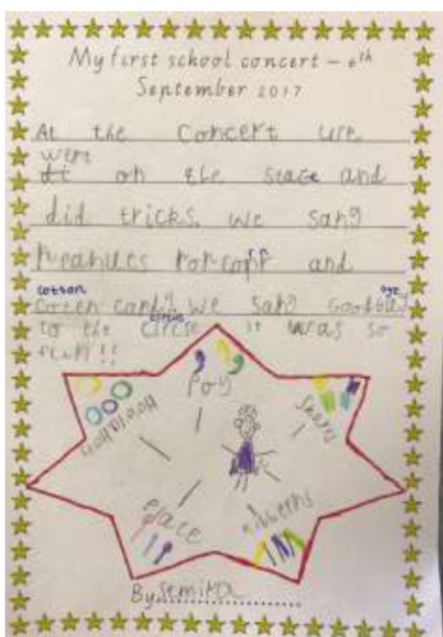 My first school concert – 6th
September 2017
At the concert we
went
on the stace and
did tricks. we sang
Peanutes Popcorn and
cotton
coten candy we sang Goodbley
oye
to the circse it was so
circus
fun!!
Poy
Hoola Hoop
Sharfs
Place
Ribberns
By Semira